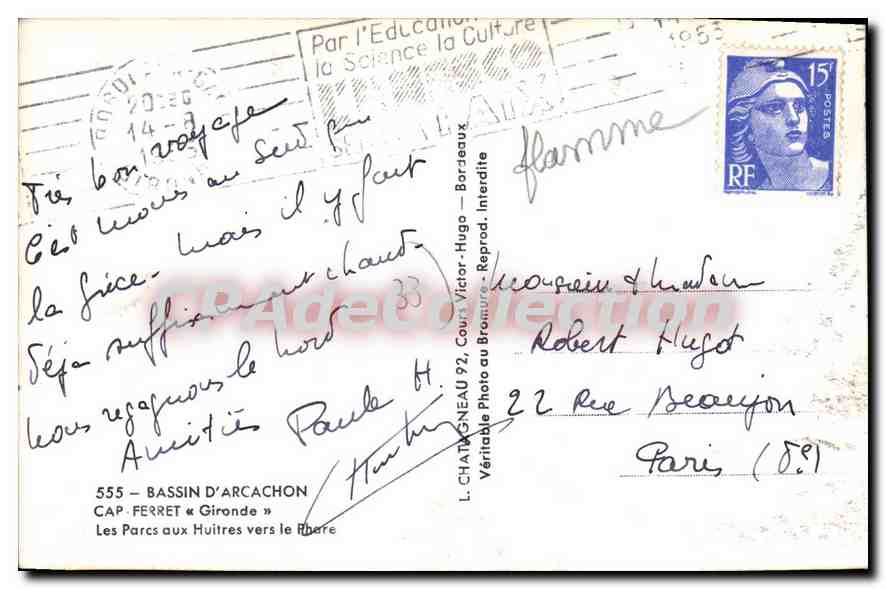 Par l'Education
la Science la Culture
UNESCO
1953
15F
POSTES
RF
flamme
Très bon voyage
C'est mous au Sud
la Grèce - mais il y fait
déjà suffisamment chaud -
33
nous regagnons le Nord
Amitiés Paule H.
L. CHATAGNEAU 92, Cours Victor-Hugo — Bordeaux
Véritable Photo au Bromure - Reprod. Interdite
Monsieur & Madame
Robert Hugot
22 Rue Beaujon
Paris (8e)
CPAdeCollection
555 — BASSIN D'ARCACHON
CAP-FERRET « Gironde »
Les Parcs aux Huitres vers le Phare